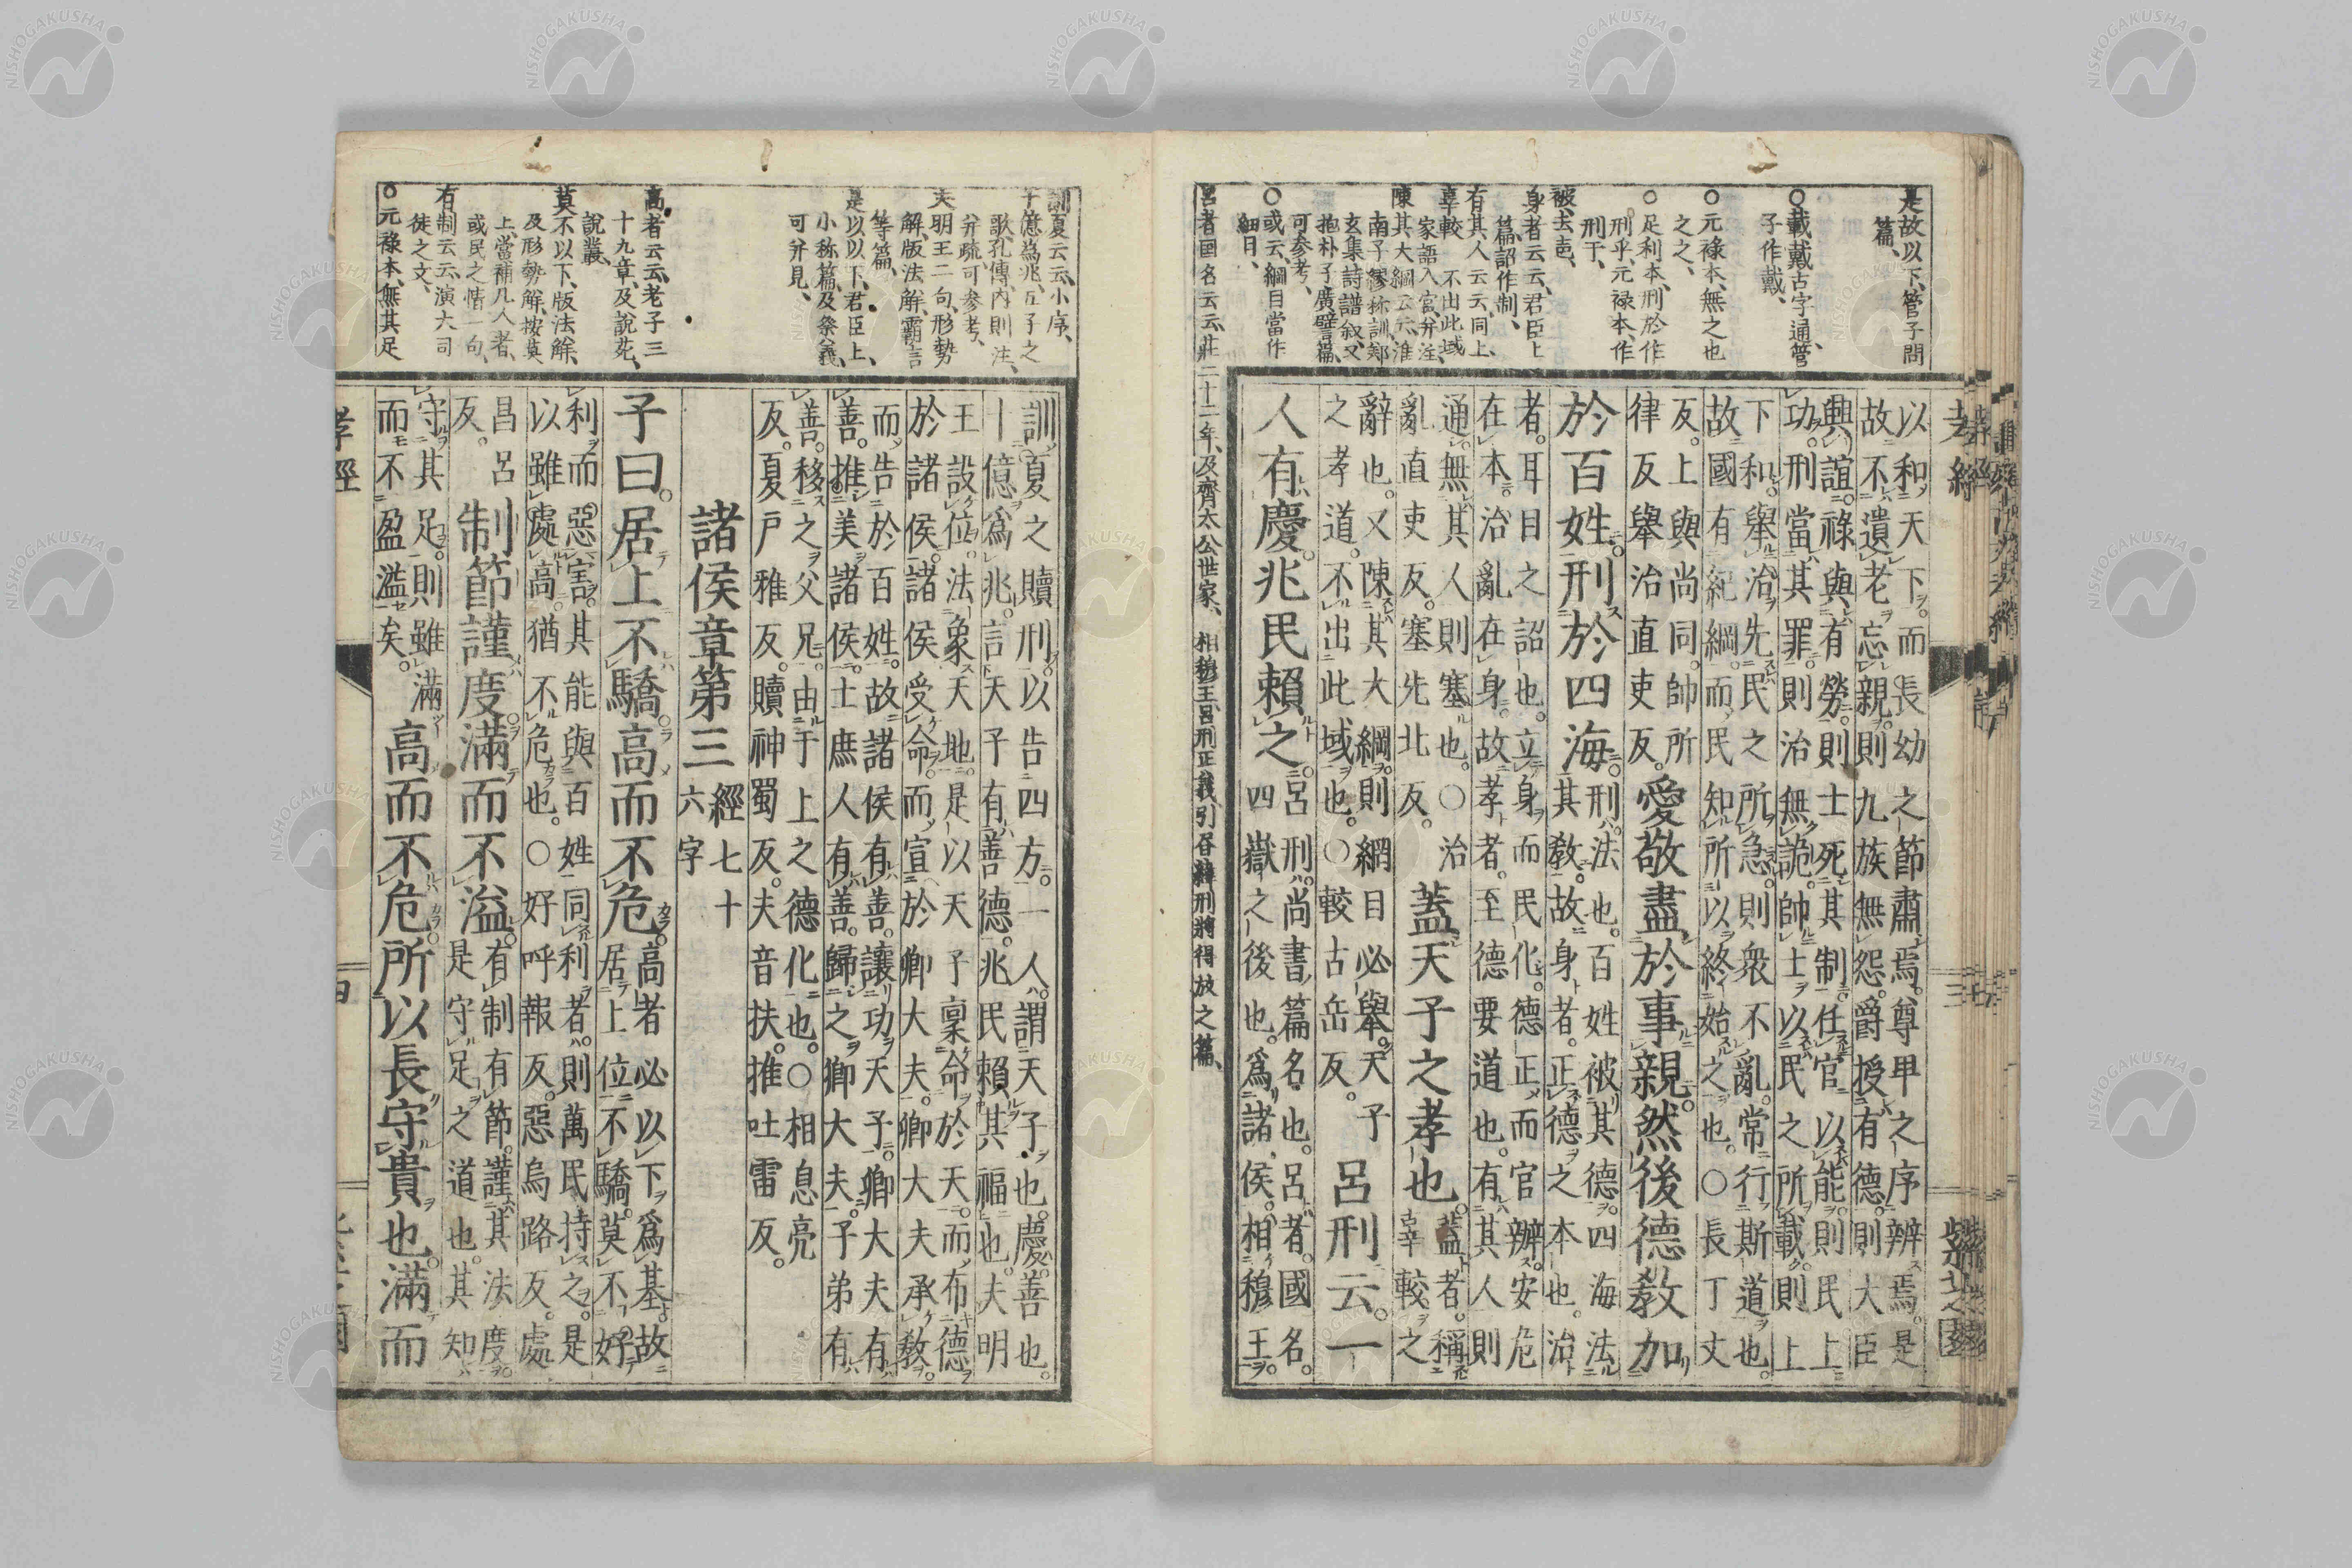 是故以下、管子問
篇、
〇載戴古字通管
子作戴、
〇元祿本、無之也
之之、
〇足利本、刑於作
刑乎、元祿本、作
刑于、
被、去声、
身者云云、君臣上
篇、詔作制、
有其人云云、同上、
辜較 不出此域
家語入官、并注、
陳其大綱云云、淮
南子繆称訓、鄭
玄集詩譜叙、又
抱朴子廣譬篇、
可参考、
〇或云、綱目當作
細目、
呂者国名云云、莊二十二年、及齊太公世家、
相穆王、呂刑正義、引
以和天下。而長幼之節肅焉。尊卑之序辨焉。是
故不遺老忘親。則九族無怨。爵授有德。則大臣
興誼。祿與有勞。則士死其制。任官以能。則民上
功。刑當其罪。則治無詭。帥士以民之所載。則上
下和。舉治先民之所急。則衆不亂。常行斯道也。
故國有紀綱。而民知所以終始之也。〇長丁丈
反。上與尚同。帥所
律反舉治直吏反。愛敬盡於事親。然後德教加
於百姓。刑於四海。刑。法也。百姓被其德。四海法
其教。故身者。正德之本也。治
者。耳目之詔也。立身而民化。德正而官辨。安危
在本。治亂在身。故孝者。至德要道也。有其人則
通。無其人則塞也。〇治
亂直吏反。塞先北反。蓋天子之孝也。蓋者。稱
辜較之
辭也。又陳其大綱。則綱目必舉。天子
之孝道。不出此域也。〇較古岳反。呂刑云。一
人有慶。兆民賴之。呂刑。尚書篇名也。呂者。國名。
四嶽之後也。爲諸侯。相穆王。
訓夏云云、小序、
十億為兆、
歌、孔傳、內則注、
并疏、可参考、
夫明王二句、形勢
解、版法解、霸言
等篇、
是以以下、君臣上、
小称篇、及祭義、
可并見、
高者云云、老子三
十九章、及說苑、
說叢、
莫不以下、版法解、
及形勢解、按莫
上、當補凡人者、
或民之情一句、
有制云云、演大司
徒之文、
〇元祿本、無其足
訓夏之贖刑。以告四方。一人。謂天子也。慶。善也。
十億爲兆。言天子有善德。兆民賴其福也。夫明
王設位。法象天地。是以天子稟命於天。而布德
於諸侯。諸侯受命。而宣於卿大夫。卿大夫承教。
而告於百姓。故諸侯有善。讓功天子。卿大夫有
善。推美諸侯。士庶人有善。歸之卿大夫。子弟有
善。移之父兄。由于上之德化也。〇相息亮
反。夏戸雅反。贖神蜀反。夫音扶。推吐雷反。
諸侯章第三 經七十
六字
子曰。居上不驕。高而不危。高者必以下爲基。故
居上位不驕。莫不好
利而惡害。其能與百姓同利者。則萬民持之。是
以雖處高。猶不危也。〇好呼報反。惡烏路反。處
昌呂
反。制節謹度。滿而不溢。有制有節。謹其法度。
是守足之道也。其知
守其足。則雖滿
而不盈溢矣。高而不危。所以長守貴也。滿而
孝經